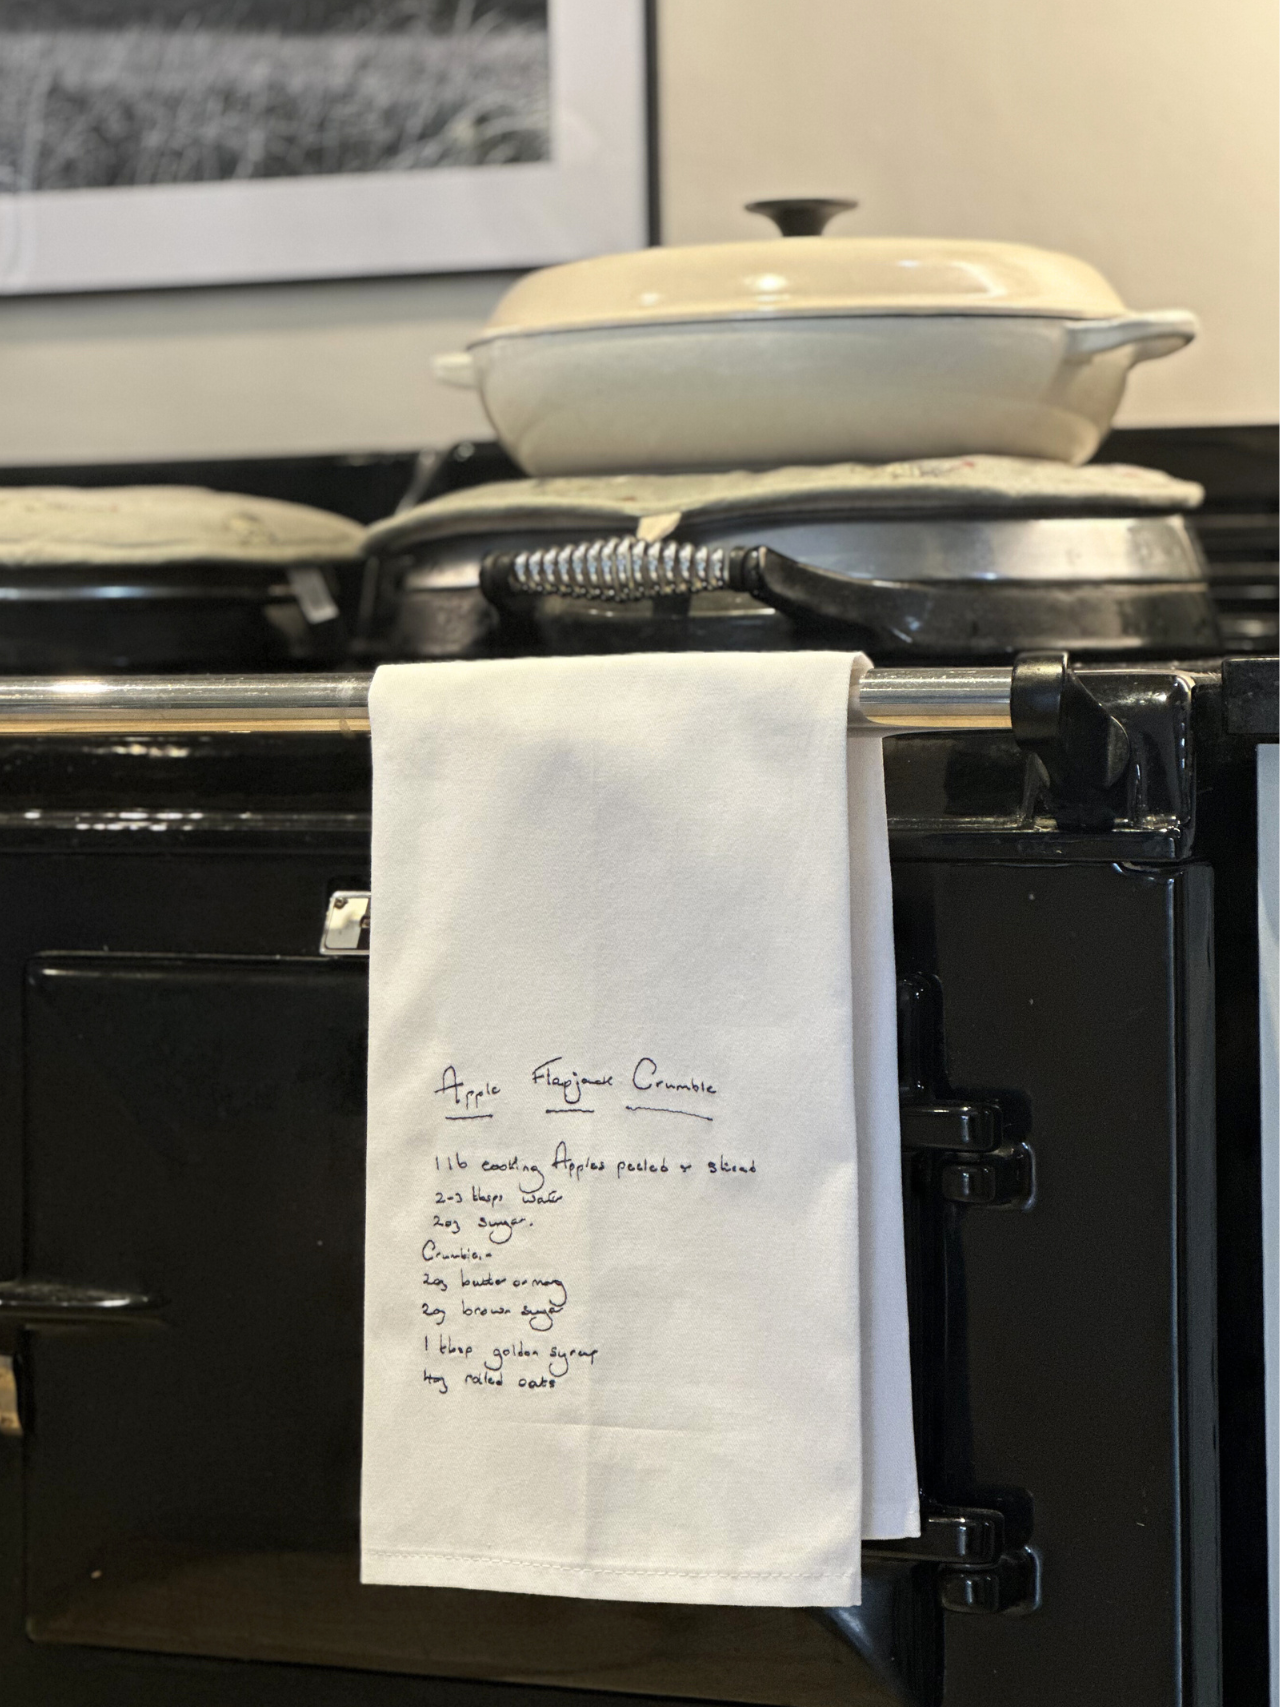 Apple Flapjack Crumble
1 lb cooking Apples peeled & sliced
2-3 tbsps water
2oz sugar.
Crumble:-
2oz butter or marg
2oz brown sugar
1 tbsp golden syrup
4oz rolled oats